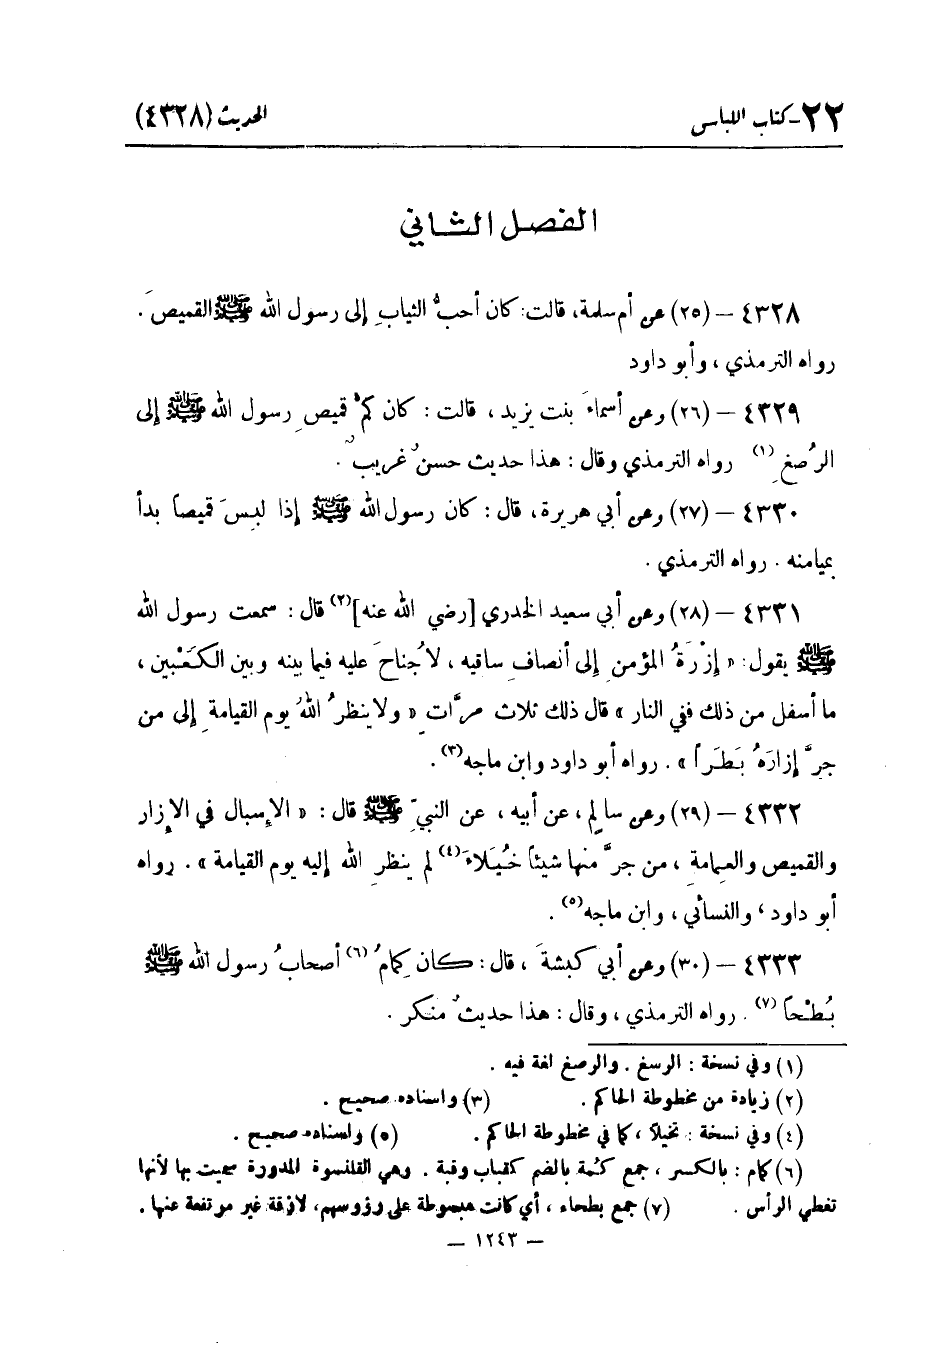 ٢٢-كتاب اللباس الحديث (٤٣٢٨)
الفصل الثاني
٤٣٢٨ – (٢٥) عن أم سلمة، قالت: كان أحبُّ الثيابِ إلى رسول الله ﷺ القميصَ .
رواه الترمذي ، وأبو داود
٤٣٢٩ – (٢٦) وعن أسماءَ بنت يزيد ، قالت : كان كمُّ قميصِ رسول الله ﷺ إلى
الرُصغِ (١) رواه الترمذي وقال : هذا حديث حسنٌ غريبٌ .
٤٣٣٠ – (٢٧) وعن أبي هريرة، قال : كان رسول الله ﷺ إذا لبسَ قميصاً بدأ
بميامنه . رواه الترمذي .
٤٣٣١ – (٢٨) وعن أبي سعيد الخدري [رضي الله عنه](٢) قال : سمعت رسول الله
ﷺ يقول: « إزْرَةُ المؤمنِ إلى أنصافِ ساقيه ، لا جُناحَ عليه فيما بينه وبين الكَعْبين ،
ما أسفل من ذلك ففي النار » قال ذلك ثلاث مرَّاتٍ « ولا ينظرُ اللهُ يوم القيامةِ إلى من
جرَّ إزارَهُ بَطَراً » . رواه أبو داود وابن ماجه(٣) .
٤٣٣٢ – (٢٩) وعن سالمٍ، عن أبيه ، عن النبيِّ ﷺ قال : « الإسبال في الإزار
والقميص والعمامةِ ، من جرَّ منها شيئاً خُيَلاءَ(٤) لم ينظرِ الله إليه يوم القيامة » . رواه
أبو داود ، والنسائي ، وابن ماجه(٥) .
٤٣٣٣ – (٣٠) وعن أبي كبشةَ ، قال : كان كِمامُ (٦) أصحابُ رسول الله ﷺ
بُطْحاً (٧) . رواه الترمذي ، وقال : هذا حديثٌ منكر .
(١) وفي نسخة : الرسغ . والرصغ لغة فيه .
(٢) زيادة من مخطوطة الحاكم . (٣) وإسناده صحيح .
(٤) وفي نسخة : تخيلاً ، كما في مخطوطة الحاكم . (٥) وإسناده صحيح .
(٦) كمام : بالكسر ، جمع كُمة بالضم كقباب وقبة . وهي القلنسوة المدورة سميت بها لأنها
تغطي الرأس . (٧) جمع بطحاء ، أي كانت مبسوطة على رؤوسهم، لازقة غير مرتفعة عنها .
– ١٢٤٣ –